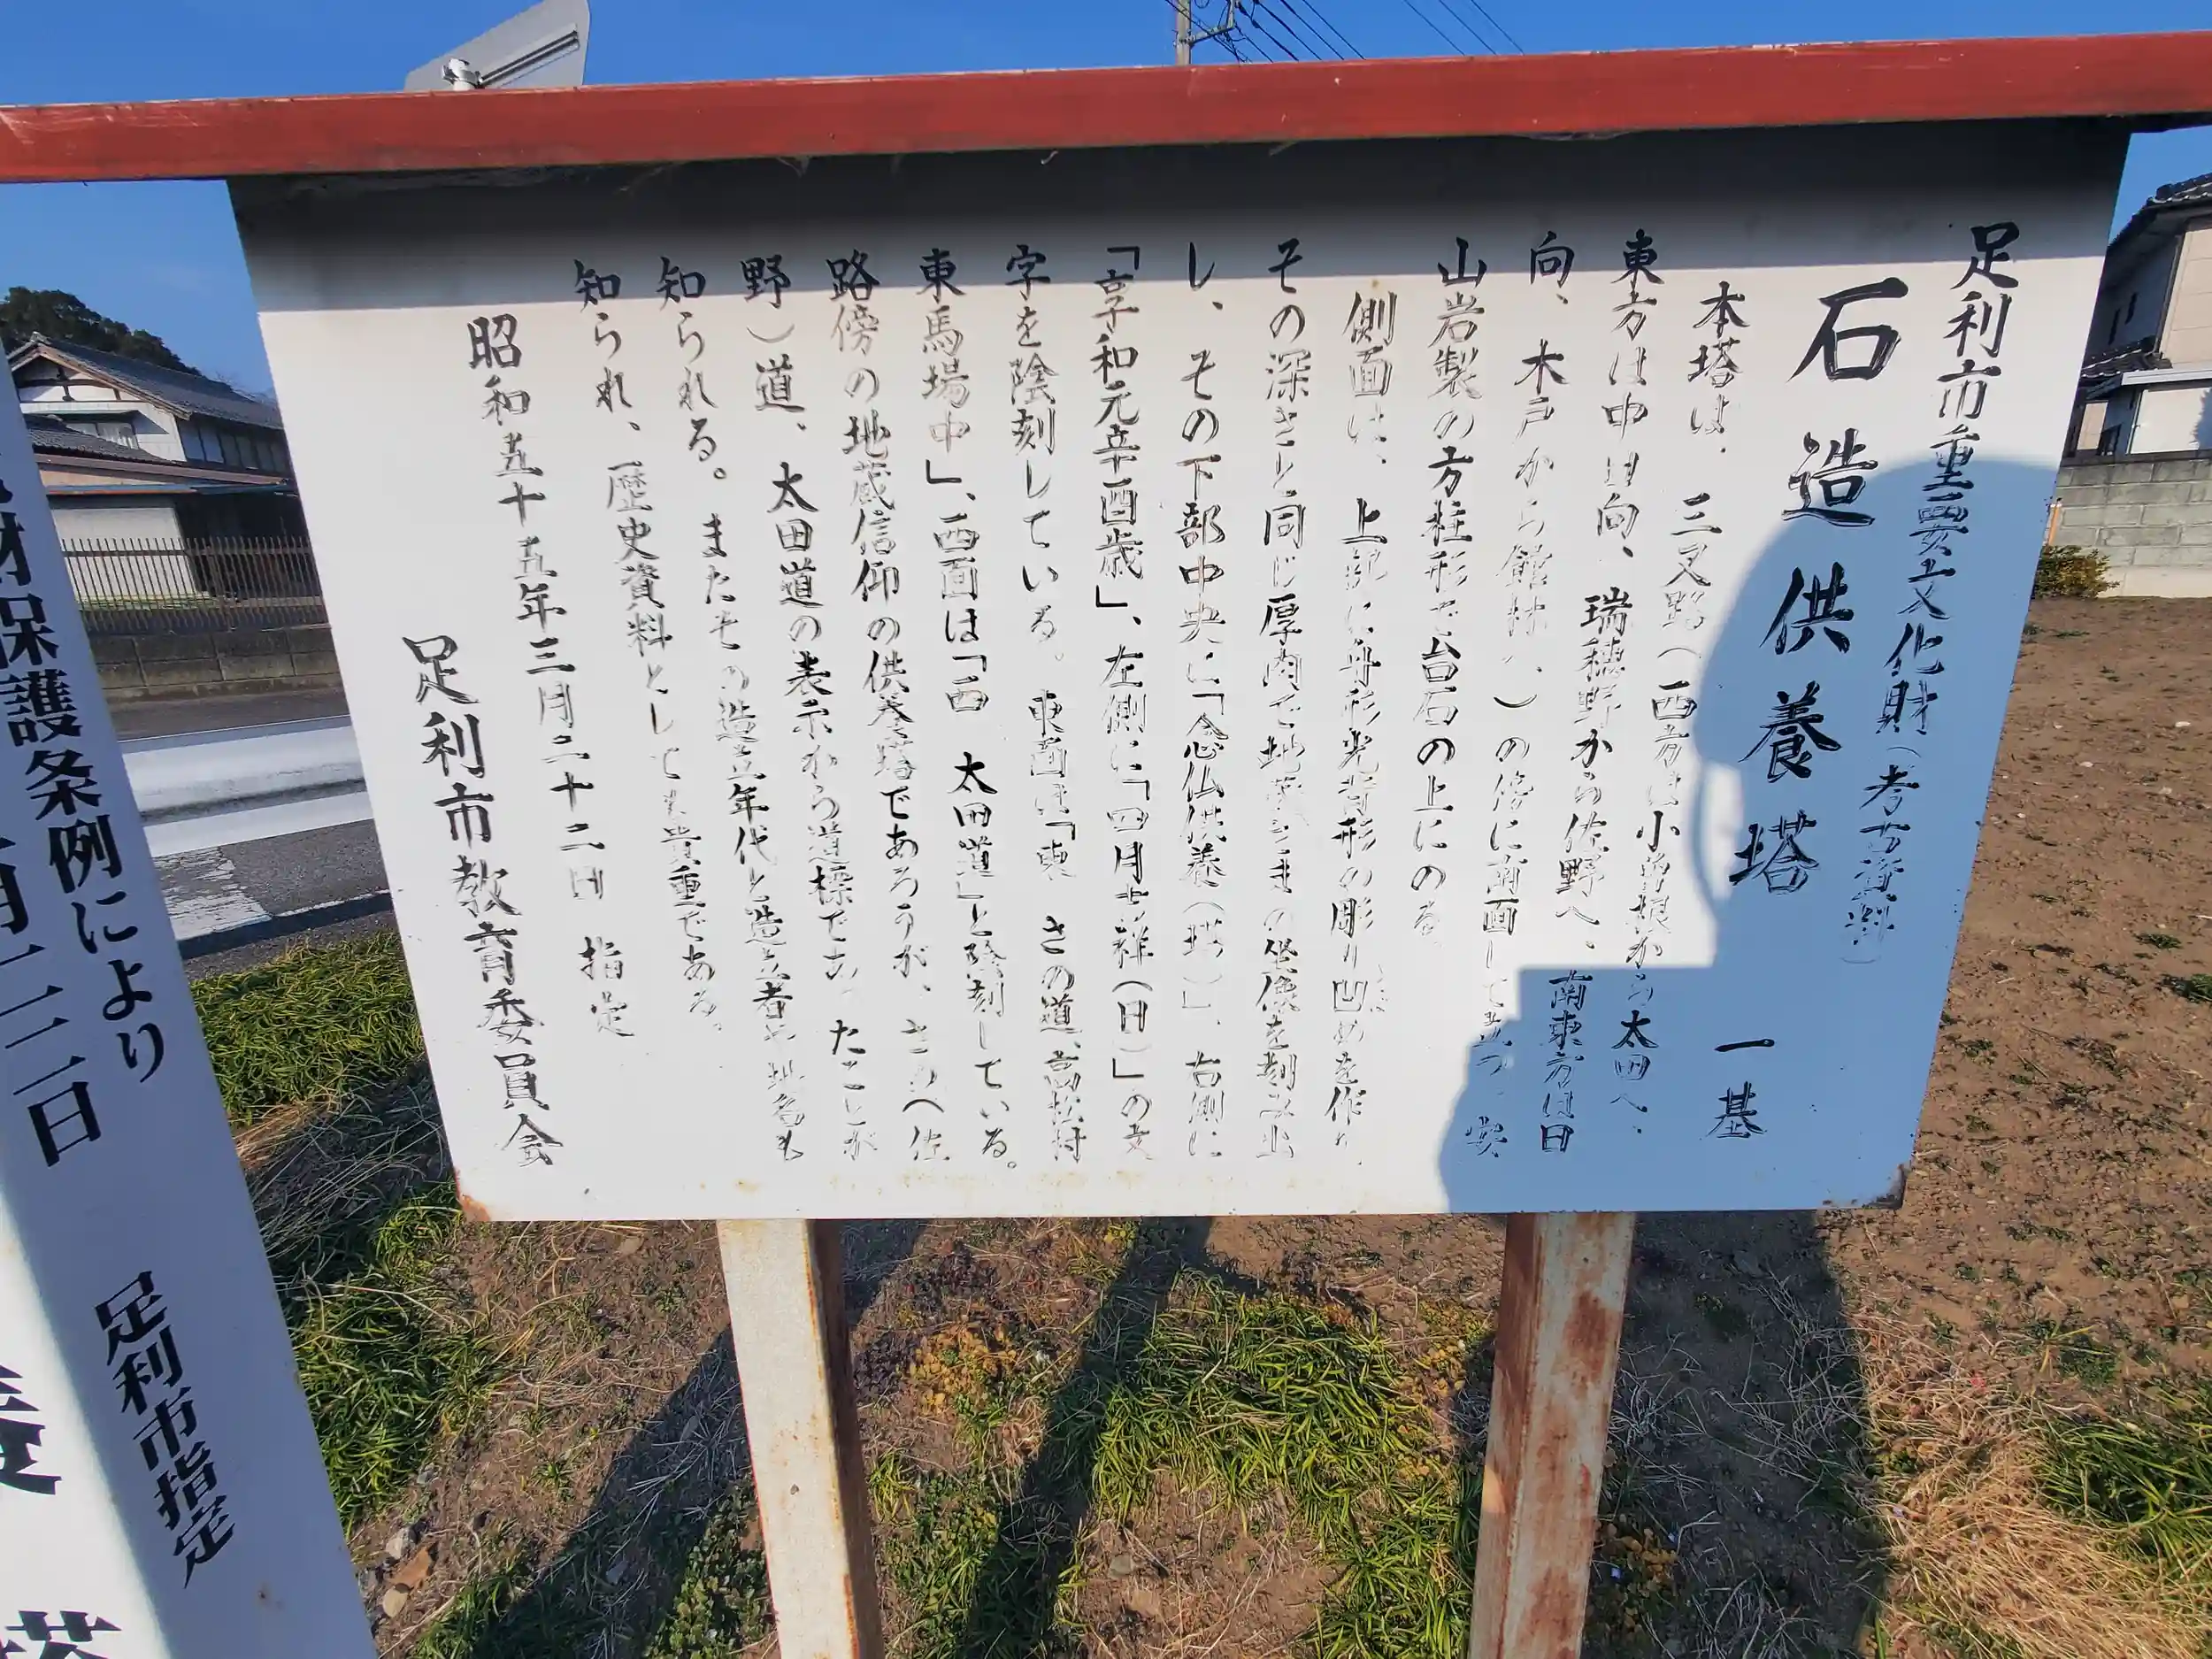 足利市重要文化財(考古資料)
石造供養塔 一基
本塔は、三叉路(西方は小曽根から太田へ、
東方は中日向、瑞穂野から佐野へ、南東方は日
向、木戸から館林へ)の傍に南面して立つ。安
山岩製の方柱形で台石の上にのる。
側面は、上部に舟形光背形の彫り凹めを作り、
その深さと同じ厚肉で地蔵さまの坐像を刻み出
し、その下部中央に「念仏供養(塔)」、右側に
「享和元辛酉歳」、左側に「四月吉祥(日)」の文
字を陰刻している。東面は「東 さの道、高松村
東馬場中」、西面は「西 太田道」と陰刻している。
路傍の地蔵信仰の供養塔であろうが、さのへ(佐
野)道、太田道の表示から道標であったことが
知られる。またその造立年代と造立者や地名も
知られ、歴史資料としても貴重である。
昭和五十五年三月二十二日 指定
足利市教育委員会
財保護条例により
月二二日 足利市指定
養塔